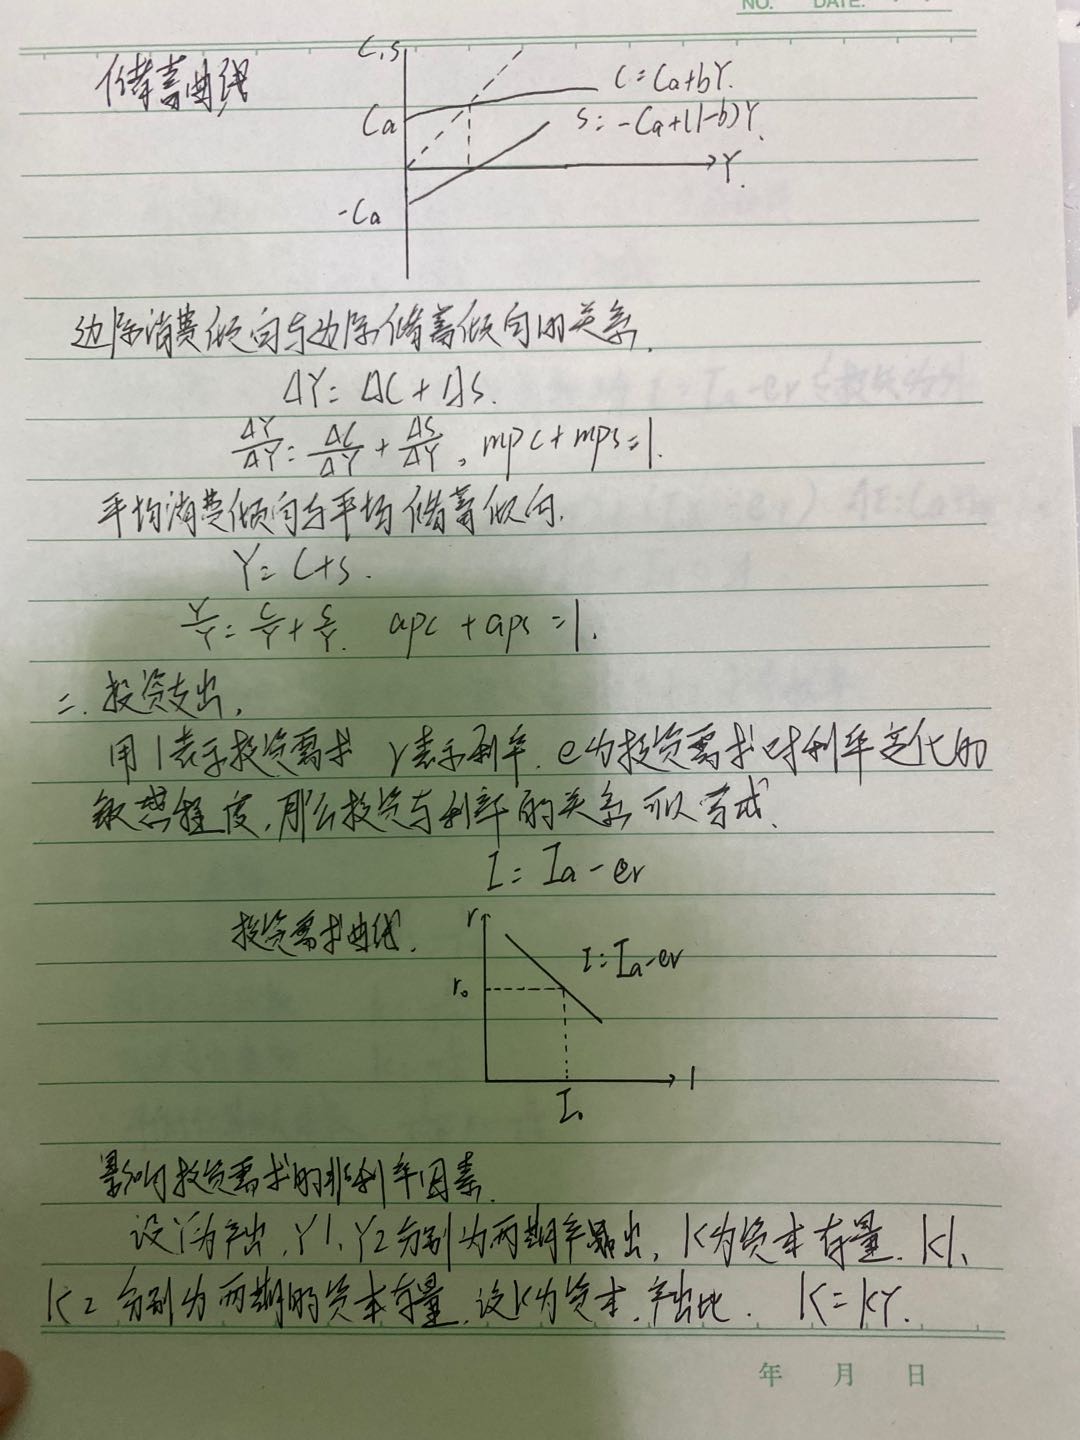 NO.    DATE.
储蓄曲线
C,S
C=Ca+bY.
Ca
S=-Ca+(1-b)Y.
Y.
-Ca
边际消费倾向与边际储蓄倾向的关系.
ΔY=ΔC+ΔS.
ΔY/ΔY=ΔC/ΔY+ΔS/ΔY, mpc+mps=1.
平均消费倾向与平均储蓄倾向.
Y=C+S.
Y/Y=C/Y+S/Y. apc+aps=1.
二.投资支出.
用I表示投资需求 r表示利率.e为投资需求对利率变化的
敏感程度,那么投资与利率的关系可以写成.
I=Ia-er
投资需求曲线.
r
I=Ia-er
r₀
I
I₀
影响投资需求的非利率因素.
设Y为产出,Y1、Y2分别为两期产出,K为资本存量.K1、
K2分别为两期的资本存量,设k为资本.产出比. K=kY.
年 月 日